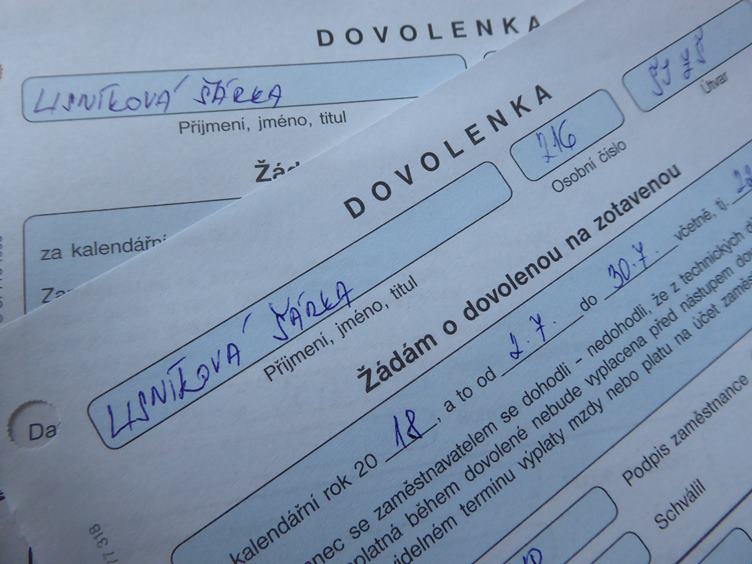 DOVOLENKA
LISNÍKOVÁ ŠÁRKA
Přijmení, jméno, titul
Žá
za kalendářní
Za
DOVOLENKA
LISNÍKOVÁ ŠÁRKA
Přijmení, jméno, titul
216
Osobní číslo
Útvar
Žádám o dovolenou na zotavenou
Da
kalendářní rok 20 18, a to od 2.7. do 30.7. včetně, tj.
nec se zaměstnavatelem se dohodli - nedohodli, že z technických d
platná během dovolené nebude vyplacena před nástupem dov
videlném termínu výplaty mzdy nebo platu na účet zamě
Podpis zaměstnance
Schválil
77 318